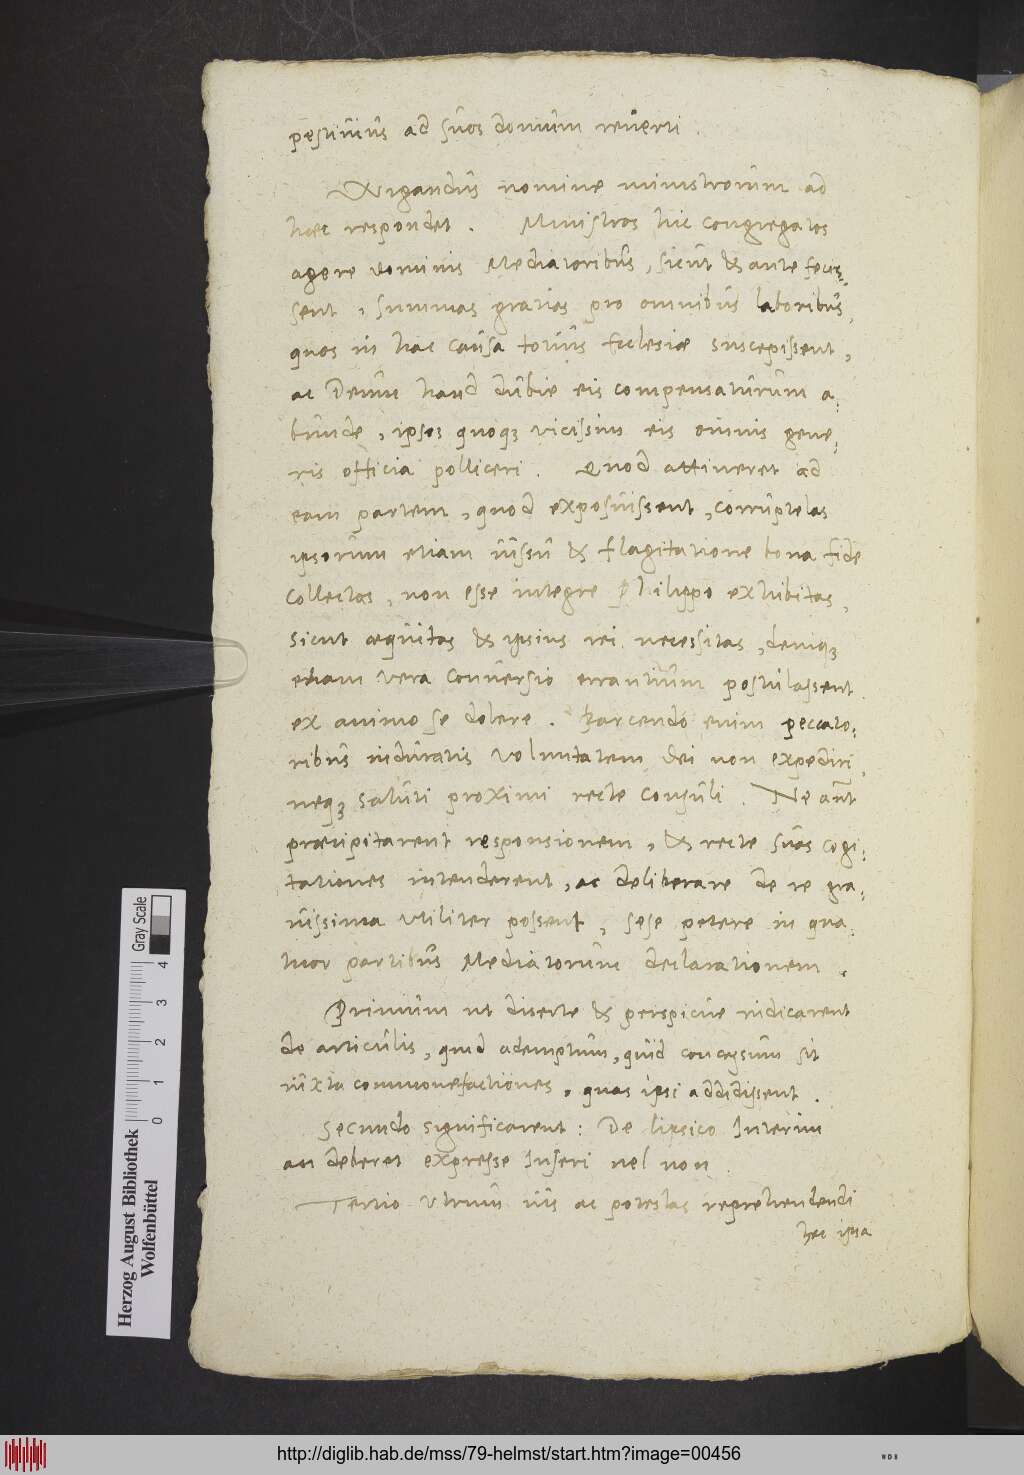 pestiuius ad suos domum reuerti.
Wigandus nomine ministrorum ad
haec respondet. Ministros hic congregatos
agere dominis Mediatoribus, sicut & ante fecis-
sent, summas gratias pro omnibus laboribus,
quos in hac causa totius Ecclesiae suscepissent,
ac Deum haud dubie eis compensaturum a-
bunde, ipsos quoq3 vicissim eis omnis gene-
ris officia polliceri. Quod attineret ad
eam partem, quod exposuissent, corruptelas
ipsorum etiam iussu & flagitatione bona fide
collectas, non esse integre Philippo exhibitas,
sicut aequitas & ipsius rei necessitas, deniq3
etiam vera conuersio errantium postulassent
ex animo se dolere. Parcendo enim peccato-
ribus induratis voluntatem Dei non expediri,
neq3 saluti proximi recte consuli. Ne aut
praecipitarent responsionem, & recte suas cogi-
tationes intenderent, ac deliberare de re gra-
uissima vtiliter possent, sese petere in qua
tuor partibus Mediatorum declarationem.
Primum ut diserte & perspicue indicarent
de articulis, quid ademptum, quid concessum sit
iuxta commonefactiones, quas ipsi addidissent.
Secundo significarent: De lipsico Interim
an deberet expresse Inseri uel non.
Tertio vtrum ius ac potestas reprehendendi
hec ipsa
Gray Scale
0 1 2 3 4
Herzog August Bibliothek
Wolfenbüttel
http://diglib.hab.de/mss/79-helmst/start.htm?image=00456
WDB